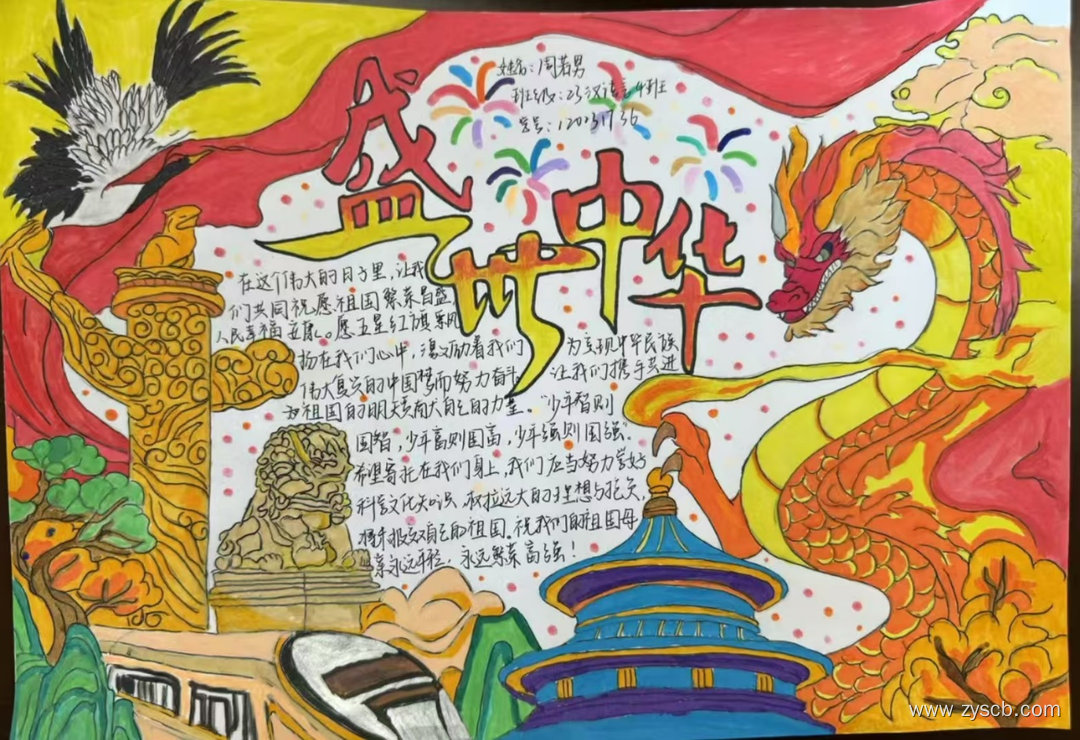 姓名：周若男
班级：23汉语言4班
学号：120231736
盛世中华
在这个伟大的日子里，让我
们共同祝愿祖国繁荣昌盛，
人民幸福安康。愿五星红旗飘
扬在我们心中，激励着我们
为实现中华民族
伟大复兴的中国梦而努力奋斗
让我们携手共进
为祖国的明天贡献自己的力量。“少年智则
国智，少年富则国富，少年强则国强”。
希望寄托在我们身上，我们应当努力学好
科学文化知识，树立远大的理想与抱负，
将来报效自己的祖国。祝我们的祖国母
亲永远年轻，永远繁荣富强！
www.zyscb.com